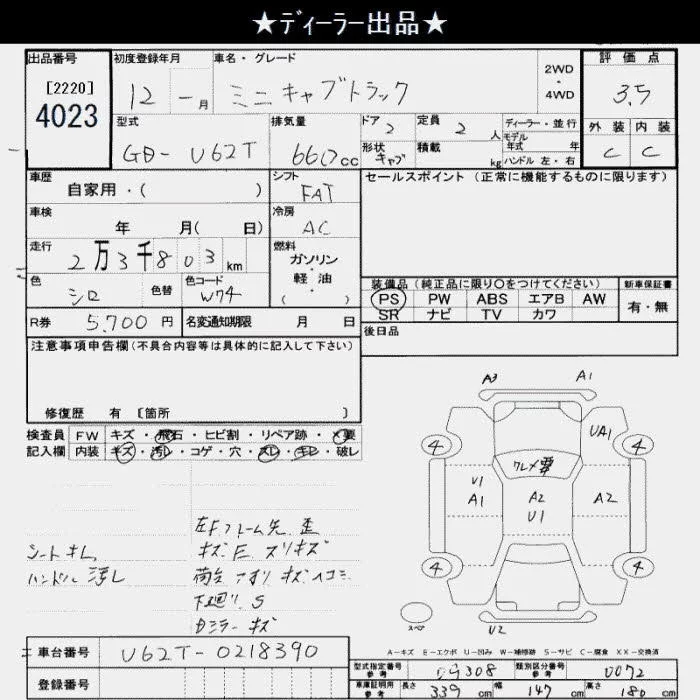 ★ディーラー出品★
出品番号
[2220]
4023
初度登録年月
12 - 月
車名・グレード
ミニキャブトラック
2WD
・
4WD
評価点
3.5
型式
GD- U62T
排気量
660cc
ドア 2
形状 キャブ
定員 2 人
積載 kg
ディーラー・並行
モデル
年式 年
ハンドル 左・右
外装 内装
C C
車歴
自家用・( )
シフト
FAT
セールスポイント(正常に機能するものに限ります)
車検
年 月( 日)
冷房
AC
走行
2万3千803km
燃料
ガソリン
・
軽油
( )
色
シロ
色替
色コード
W74
装備品(純正品に限り○をつけてください)
PS PW ABS エアB AW
SR ナビ TV カワ
新車保証書
有・無
R券 5,700 円
名変通知期限 月 日
後日品
注意事項申告欄(不具合内容等は具体的に記入して下さい)
修復歴 有 [箇所 ]
検査員
記入欄
FW キズ・飛石・ヒビ割・リペア跡・×要
内装 キズ・汚レ・コゲ・穴・スレ・キレ・破レ
シートキレ
ハンドル汚レ
左Fフレーム先 歪
キズE スリキズ
荷台 アオリ キズヘコミ
下廻り S
ミラー キズ
A3 A1
UA1
4 4
ワレメ要
U1
A1
A2
U1
A2
4 4
スペア
U2
A-キズ E-エクボ U-凹み W-補修跡 S-サビ C-腐食 XX-交換済
車台番号 U62T-0218390
登録番号
型式指定番号
参考
09308
類別区分番号
参考
0072
車庫証明用
参考
長さ 339 cm
幅 147 cm
高さ 180 cm